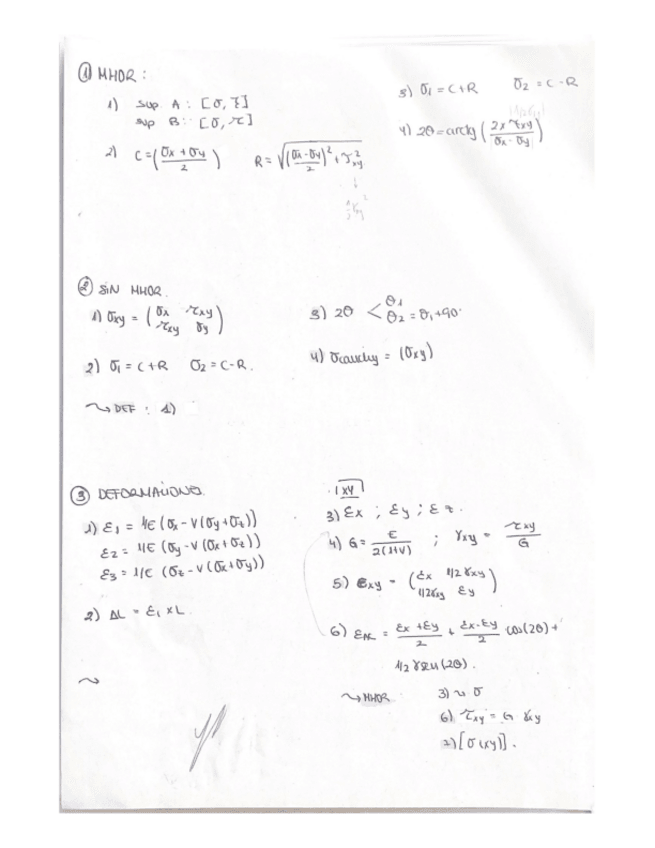 ① MHOR :
1) Sup A : [σ, τ]
Sup B : [σ, τ]
2) C = (σx + σy / 2) R = √((σx - σy / 2)² + τxy²)
3) σ1 = C+R σ2 = C-R
4) 2θ = arctg (2 x τxy / σx - σy)
② SIN MHOR.
1) σxy = (σx τxy
τxy σy)
2) σ1 = C+R σ2 = C-R.
↝ DEF : 1)
3) 2θ < θ1
θ2 = θ1+90º
4) σcauchy = (σxy)
③ DEFORMACIONES.
1) ε1 = 1/E (σx - V(σy+σz))
ε2 = 1/E (σy - V(σx+σz))
ε3 = 1/E (σz - V(σx+σy))
2) ΔL = ε1 x L.
xy
3) εx ; εy ; εz.
4) G = E / 2(1+V) ; γxy = τxy / G
5) εxy = (εx 1/2 γxy
1/2γxy εy)
6) = εx + εy / 2 + εx - εy / 2 cos(2θ) +
1/2 γsen(2θ).
↝ MHOR 3) ↝ σ
6) τxy = G γxy
2) [σ(xy)].